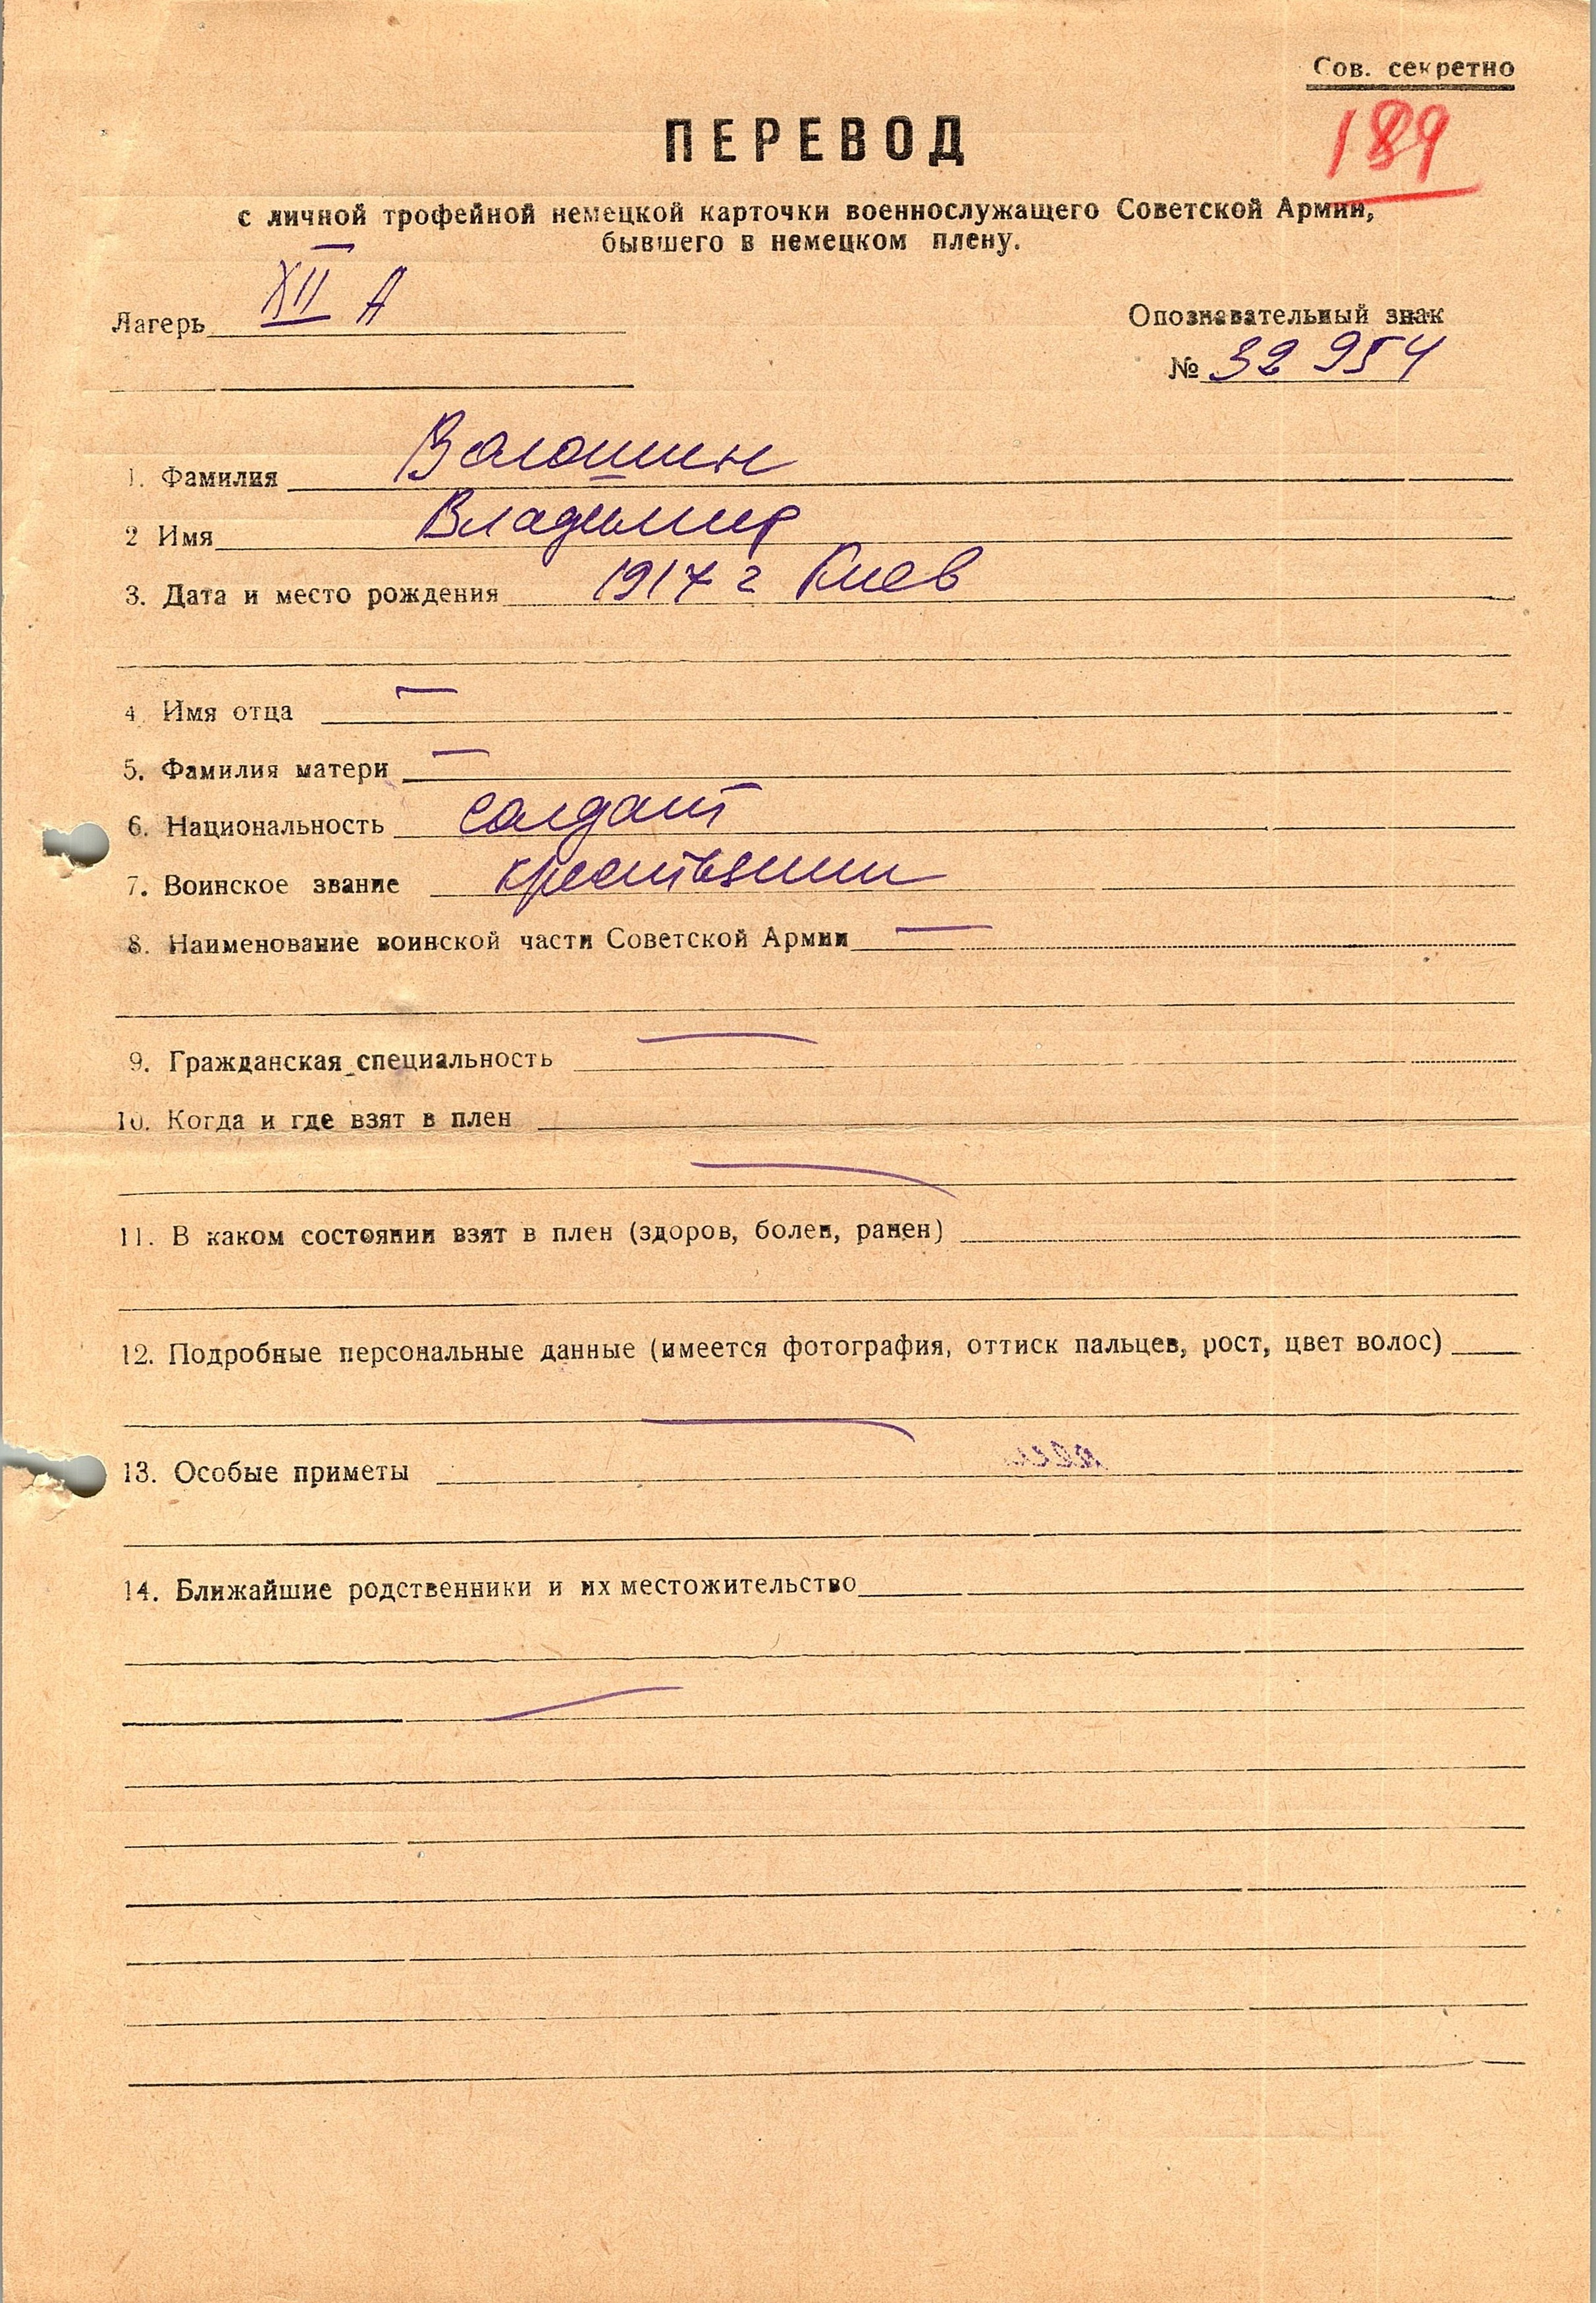 Сов. секретно
189
ПЕРЕВОД
с личной трофейной немецкой карточки военнослужащего Советской Армии,
бывшего в немецком плену.
Лагерь XII А
Опознавательный знак
№ 32 954
1. Фамилия Волошин
2 Имя Владимир
3. Дата и место рождения 1917 г Киев
4 Имя отца —
5. Фамилия матери —
6. Национальность солдат
7. Воинское звание крестьянин
8. Наименование воинской части Советской Армии —
9. Гражданская специальность —
10. Когда и где взят в плен
—
11. В каком состоянии взят в плен (здоров, болен, ранен)
12. Подробные персональные данные (имеется фотография, оттиск пальцев, рост, цвет волос)
—
13. Особые приметы
14. Ближайшие родственники и их местожительство
—